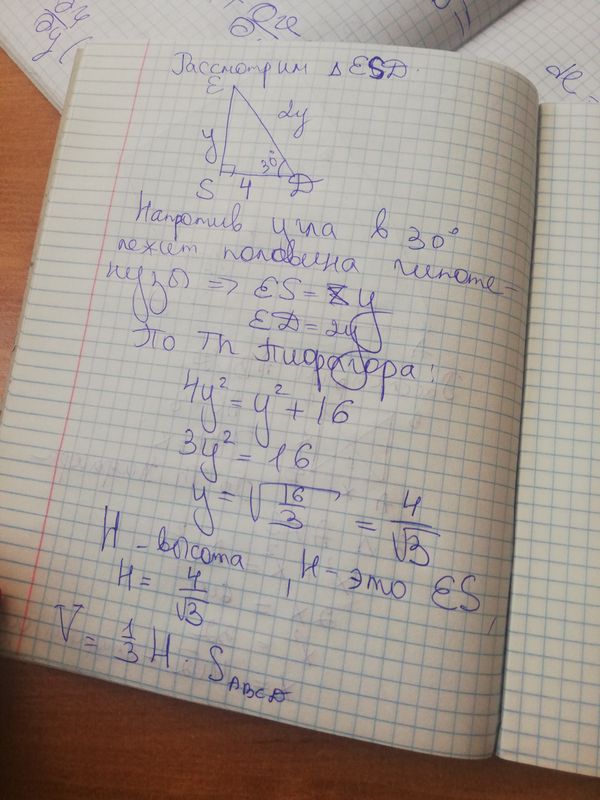 Рассмотрим △ ESD.
E
2y
y
30°
S 4 D
Напротив угла в 30°
лежит половина гипоте-
нузы => ES = y
ED = 2y
По Th Пифагора:
4y² = y² + 16
3y² = 16
y = √16/3 = 4/√3
H - высота, H - это ES,
H = 4/√3
V = 1/3 H · S ABCD